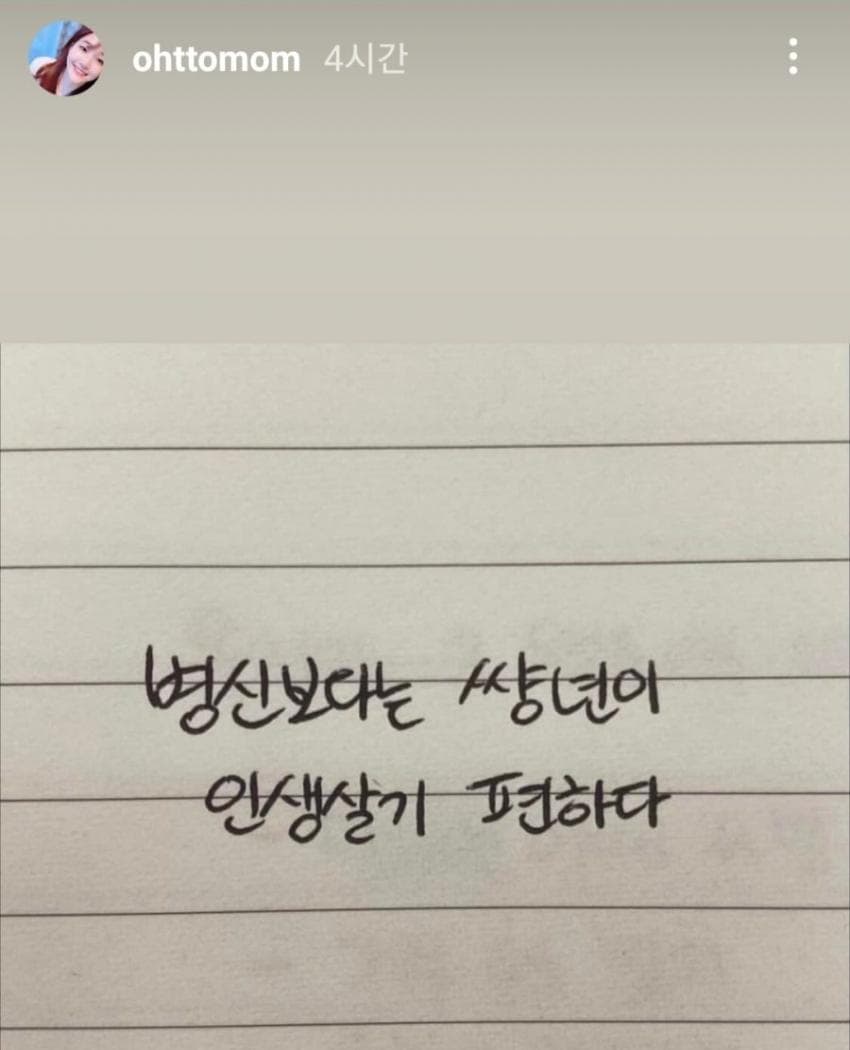 ohttomom 4시간
병신보다는 썅년이
인생살기 편하다